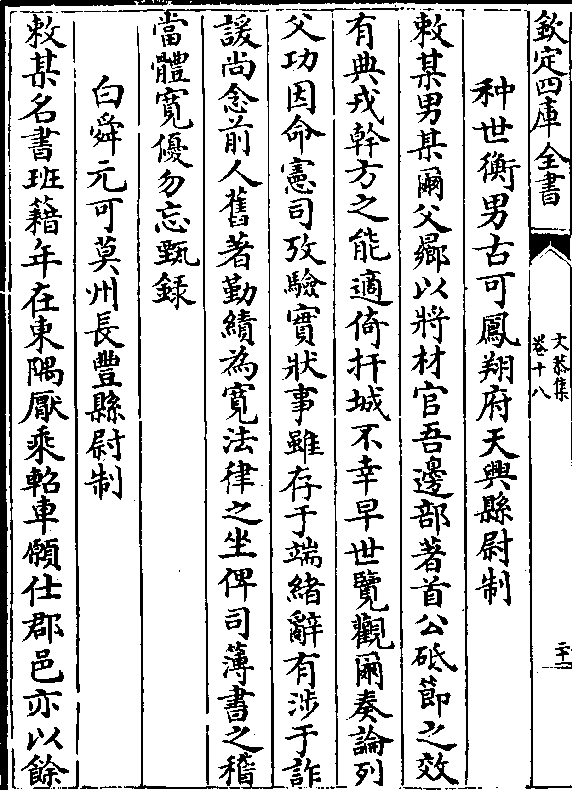 欽定四庫全書
文恭集
卷十八
二十一
种世衡男古可鳳翔府天興縣尉制
敕某男某爾父鄉以將材官吾邊部著首公砥節之效
有典戎幹方之能適倚扞城不幸早世覽觀爾奏論列
父功因命憲司攷驗實狀事雖存于端緒辭有涉于詐
諼尚念前人舊著勤績為寛法律之坐俾司簿書之稽
當體寛優勿忘甄録
白舜元可莫州長豐縣尉制
敕某名書班籍年在東隅厭乘軺車願仕郡邑亦以餘